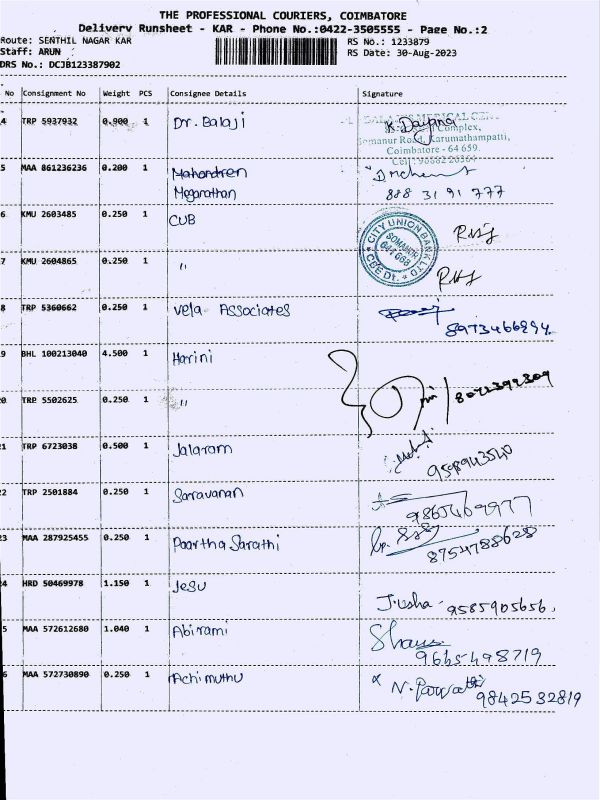 THE PROFESSIONAL COURIERS, COIMBATORE
Delivery Runsheet - KAR - Phone No.:0422-3505555 - Page No.:2
Route: SENTHIL NAGAR KAR
RS No.: 1233879
Staff: ARUN
RS Date: 30-Aug-2023
DRS No.: DCJB123387902
No Consignment No Weight PCS Consignee Details Signature
4 TRP 5937932 0.900 1 Dr. Balaji K. Dayana
Complex,
Somanur Road, Karumathampatti,
Coimbatore - 641 659.
5 MAA 861236236 0.200 1 Mahandren
Megarathan 888 31 91 777
6 KMU 2603485 0.250 1 CUB
CITY UNION BANK LTD.
SOMANUR
641 668
CBE Dt.
7 KMU 2604865 0.250 1 "
8 TRP 5360662 0.250 1 Vela Associates
8973466894
9 BHL 100213040 4.500 1 Harini
0 TRP 5502625 0.250 1 "
1 TRP 6723038 0.500 1 Jalaram
9598943540
2 TRP 2501884 0.250 1 Saravanan
9865469977
3 MAA 287925455 0.250 1 Paartha Sarathi
8754788628
4 HRD 50469978 1.150 1 Jesu
J. usha - 9585905656
5 MAA 572612680 1.040 1 Abirami
9665498719
6 MAA 572730890 0.250 1 Achimuthu N. Parvathi
9842532819